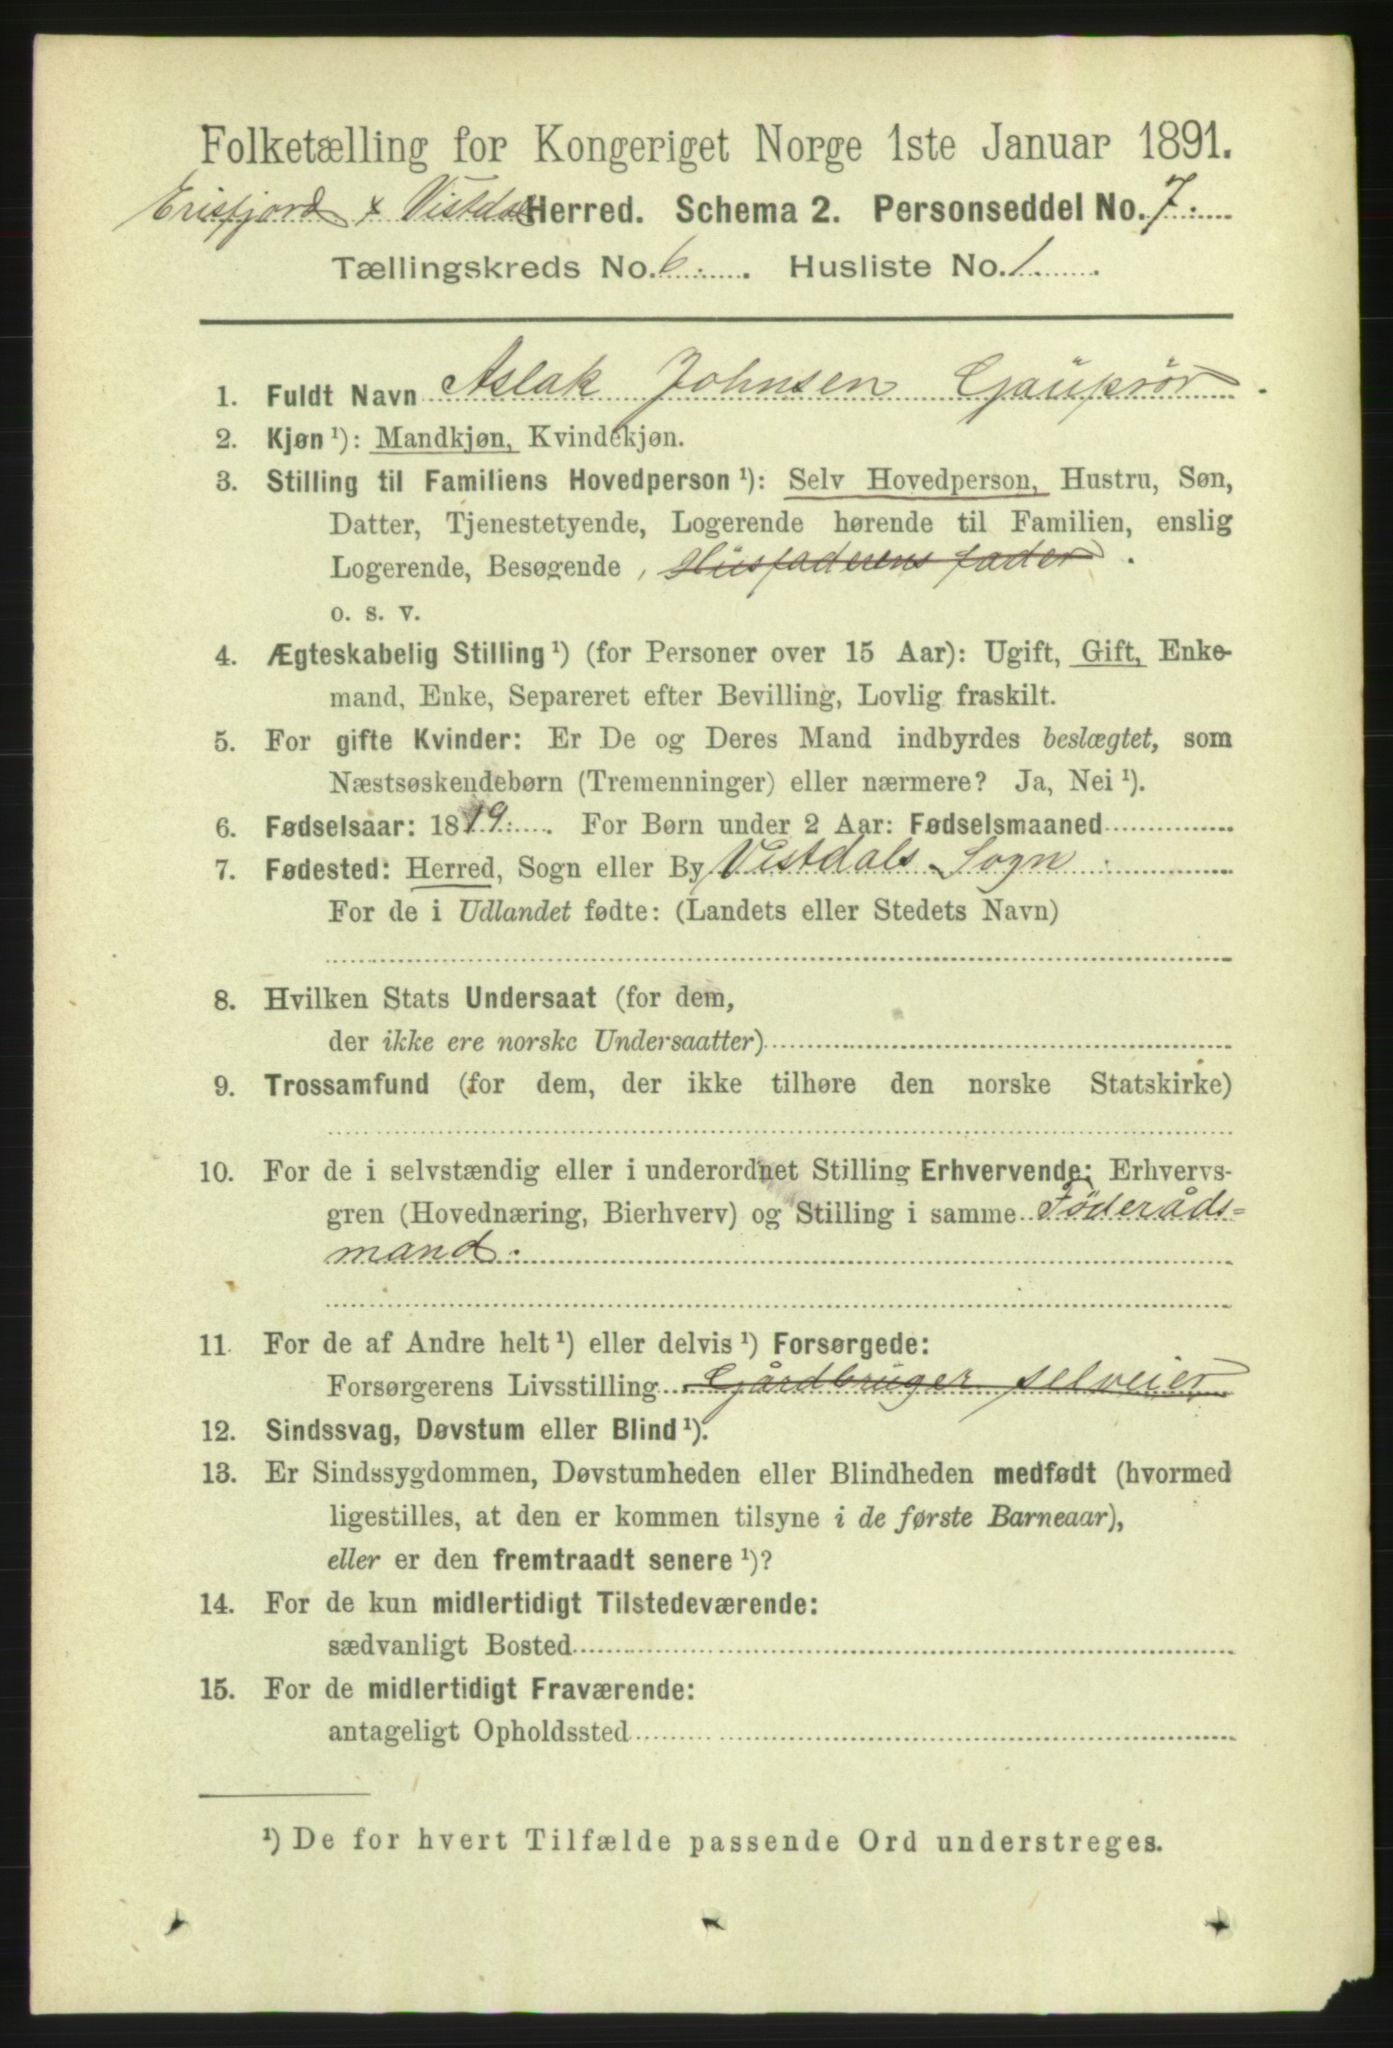 Folketælling for Kongeriget Norge 1ste Januar 1891.
Erisfjord & Vistdal Herred. Schema 2. Personseddel No. 7.
Tællingskreds No. 6. Husliste No. 1
1. Fuldt Navn Aslak Johnsen Gauprör.
2. Kjøn ¹): Mandkjøn, Kvindekjøn.
3. Stilling til Familiens Hovedperson ¹): Selv Hovedperson, Hustru, Søn,
Datter, Tjenestetyende, Logerende hørende til Familien, enslig
Logerende, Besøgende, Husfaderens fader.
o. s. v.
4. Ægteskabelig Stilling ¹) (for Personer over 15 Aar): Ugift, Gift, Enke-
mand, Enke, Separeret efter Bevilling, Lovlig fraskilt.
5. For gifte Kvinder: Er De og Deres Mand indbyrdes beslægtet, som
Næstsøskendebørn (Tremenninger) eller nærmere? Ja, Nei ¹).
6. Fødselsaar: 1819. For Børn under 2 Aar: Fødselsmaaned
7. Fødested: Herred, Sogn eller By Vistdals Sogn.
For de i Udlandet fødte: (Landets eller Stedets Navn)
8. Hvilken Stats Undersaat (for dem,
der ikke ere norske Undersaatter)
9. Trossamfund (for dem, der ikke tilhøre den norske Statskirke)
10. For de i selvstændig eller i underordnet Stilling Erhvervende: Erhvervs-
gren (Hovednæring, Bierhverv) og Stilling i samme Föderåds=
mand.
11. For de af Andre helt ¹) eller delvis ¹) Forsørgede:
Forsørgerens Livsstilling Gårdbruger selveier
12. Sindssvag, Døvstum eller Blind ¹).
13. Er Sindssygdommen, Døvstumheden eller Blindheden medfødt (hvormed
ligestilles, at den er kommen tilsyne i de første Barneaar),
eller er den fremtraadt senere ¹)?
14. For de kun midlertidigt Tilstedeværende:
sædvanligt Bosted
15. For de midlertidigt Fraværende:
antageligt Opholdssted
¹) De for hvert Tilfælde passende Ord understreges.